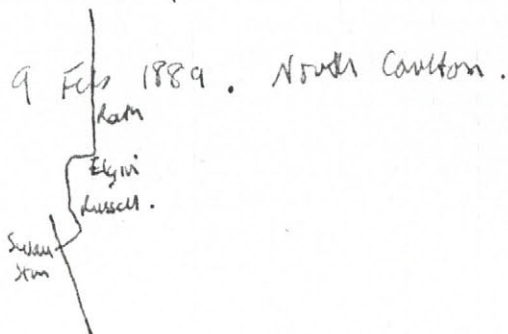 9 Feb 1889. North Carlton.
Rath
Elgin
Russell.
Swan
Ston